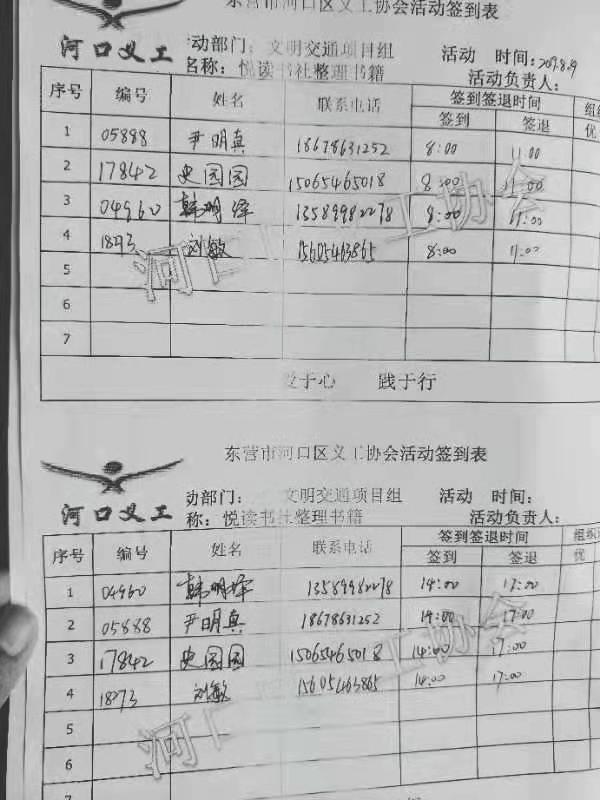 东营市河口区义工协会活动签到表
河口义工
动部门：文明交通项目组 活动 时间：2017.8.29
名称：悦读书社整理书籍 活动负责人：
序号 编号 姓名 联系电话 签到签退时间 组织
签到 签退 优
1 05888 尹明真 18678631252 8:00 11:00
2 17842 史园园 15065465018 8:00 11:00
3 04960 韩明泽 13589982278 8:00 11:00
4 18273 刘敏 15605463865 8:00 11:00
5
6
7
于心 践于行
河口 义工协会
东营市河口区义工协会活动签到表
河口义工
动部门： 文明交通项目组 活动 时间：
称：悦读书社整理书籍 活动负责人：
序号 编号 姓名 联系电话 签到签退时间 组织
签到 签退 优
1 04960 韩明泽 13589982278 14:00 17:00
2 05888 尹明真 18678631252 14:00 17:00
3 17842 史园园 15065465018 14:00 17:00
4 18273 刘敏 15605463865 14:00 17:00
5
6
7
河 工协会